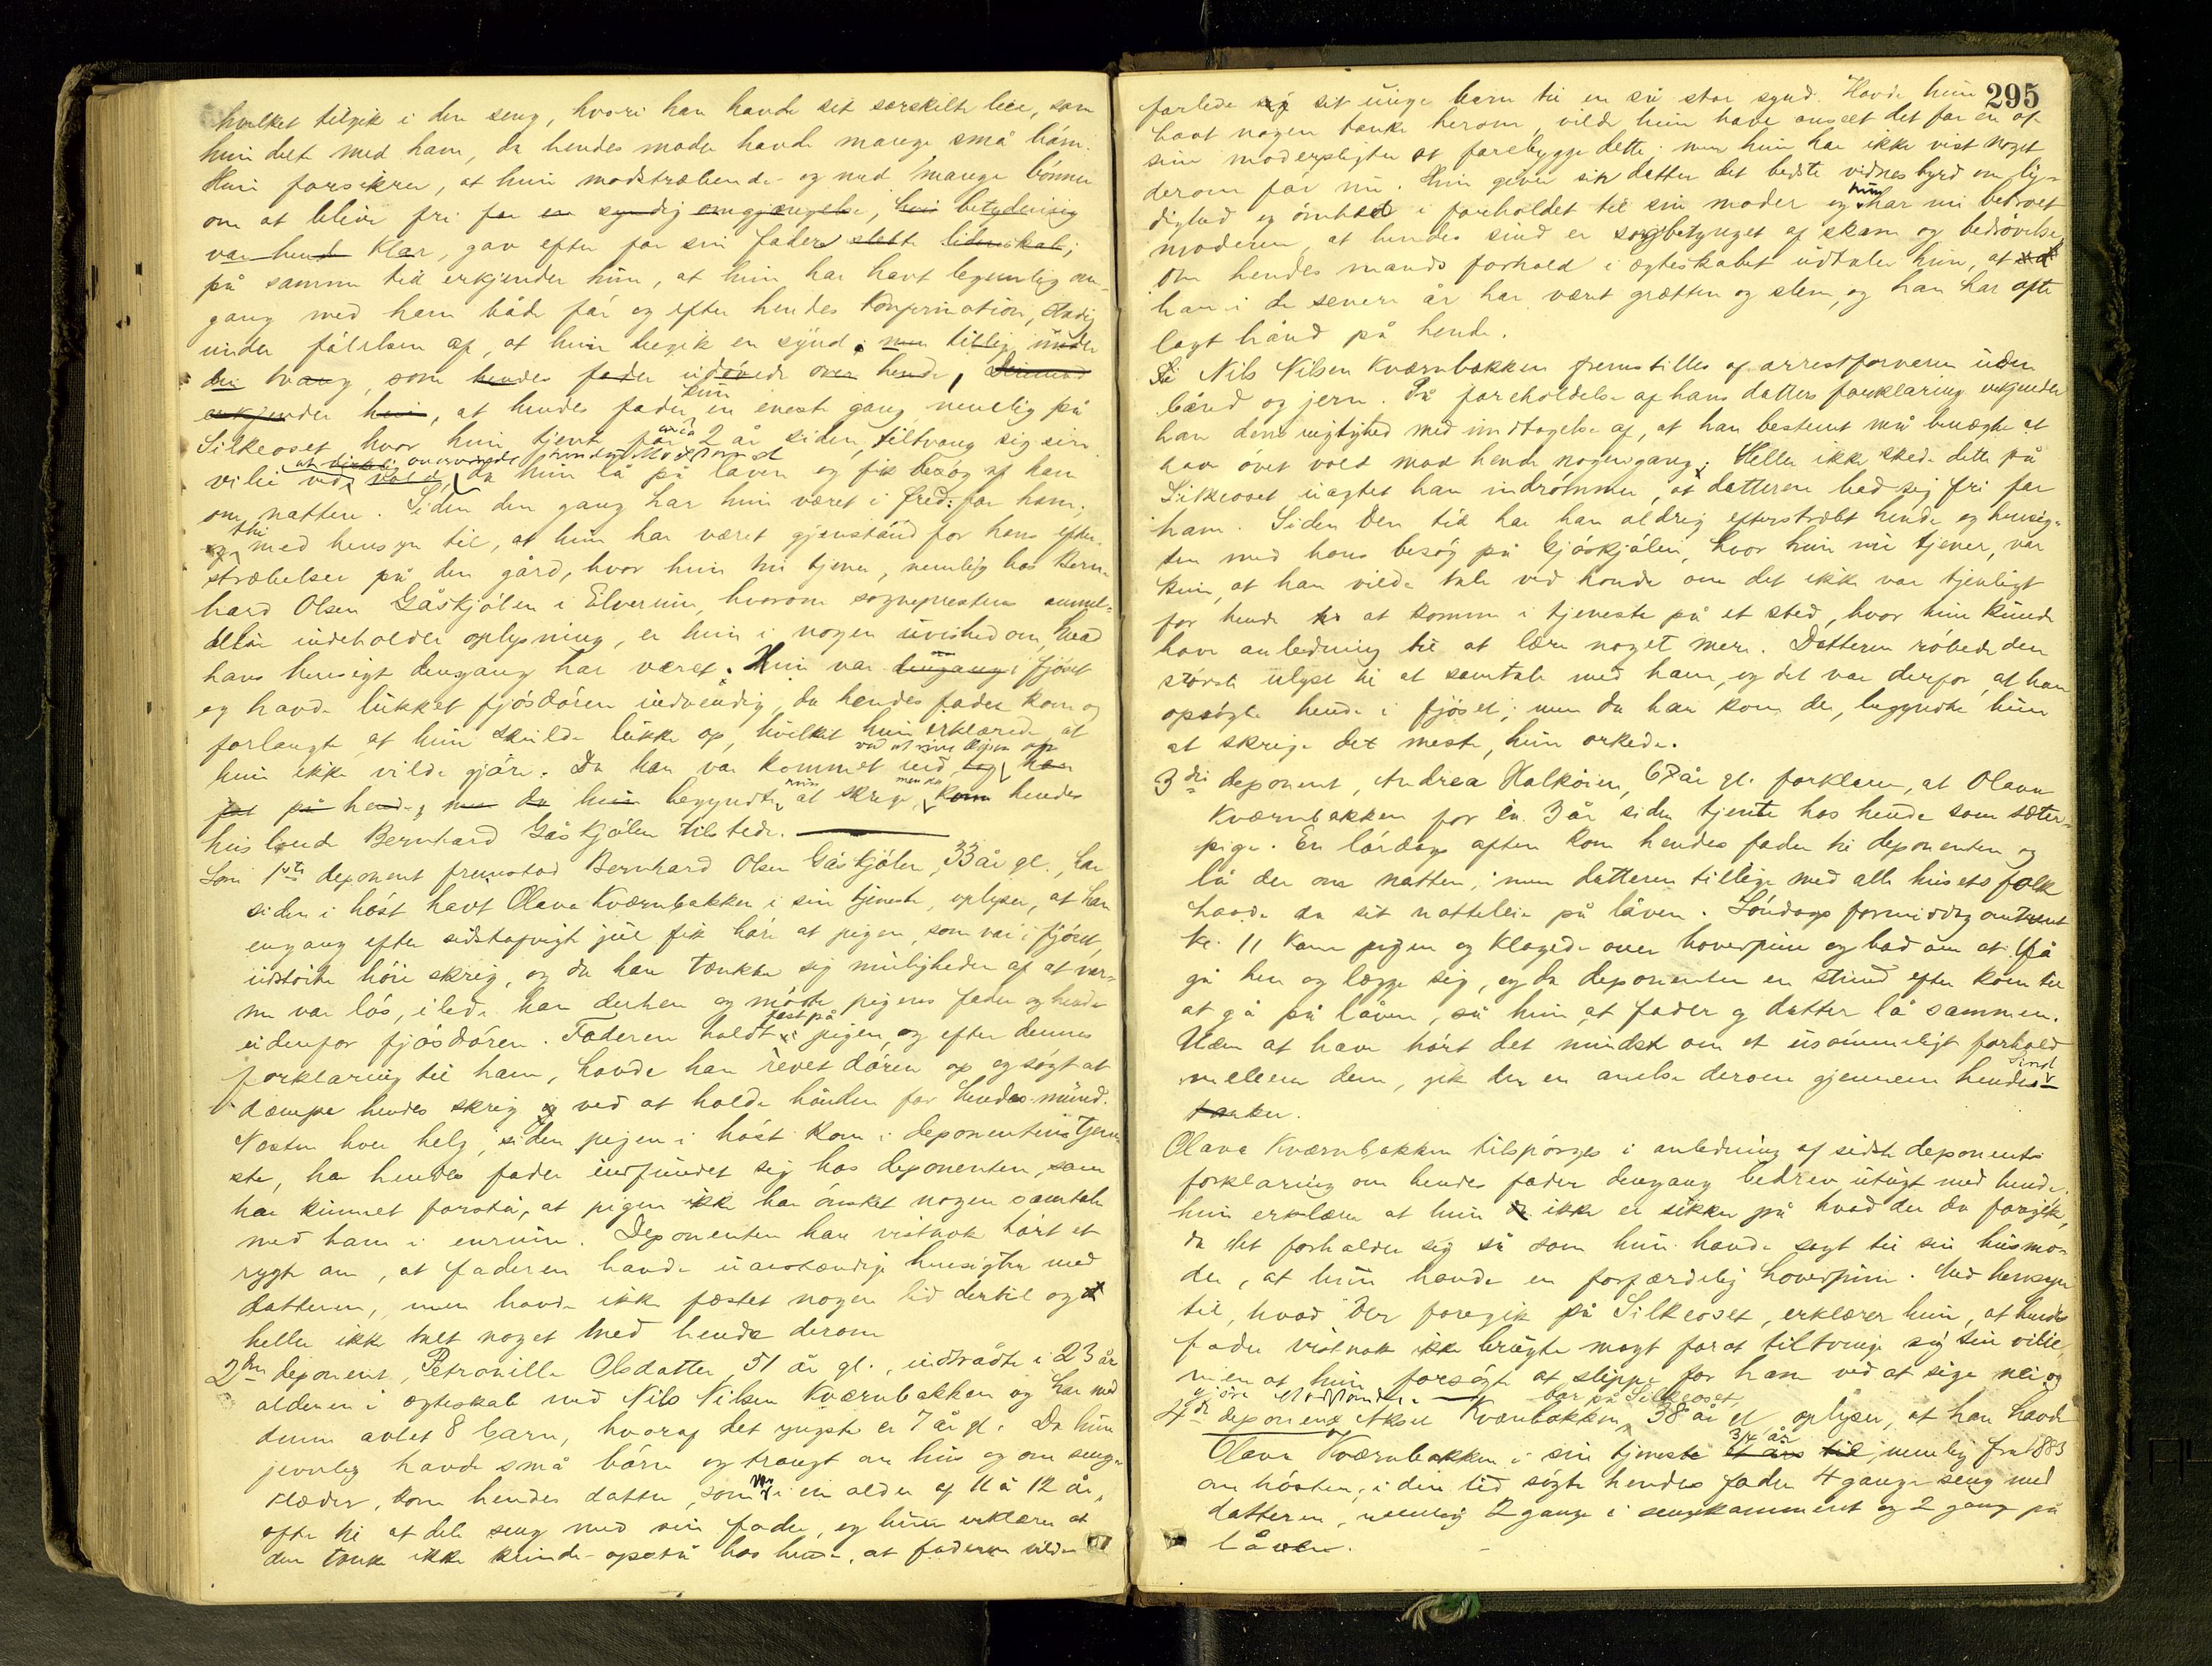 hvilket tilgik i den seng, hvori han havde sit særskilte leie, som
hun delte med ham, da hendes moder havde mange små børn.
Hun forsikrer, at hun modstræbende og med mange bønner
om at blive fri for en syndig omgjængelse, hvis betydning
var hende klar, gav efter for sin faders slette lidenskab;
på samme tid erkjender hun, at hun har havt legemlig om-
gang med ham både før og efter hendes konfirmation, stadig
under følelsen af, at hun begik en synd, men tillige under
den tvang, som hendes fader udøvede over hende. Derimod
erkjender hun, at hendes fader kun en eneste gang nemlig på
Silkeoset hvor hun tjente for circa 2 år siden, tiltvang sig sin
vilie ved at virkelig overvinde hendes modstand vold, da hun lå på låven og fik besøg af ham
om natten. Siden den gang har hun været i fred for ham;
og thi med hensyn til, at hun har været gjenstand for hans efter-
stræbelser på den gård, hvor hun nu tjener, nemlig hos Bern-
hard Olsen Gåskjølen i Elverum, hvorom sogneprestens anmel-
delse indeholder oplysning, er hun i nogen uvished om, hvad
hans hensigt dengang har været. Hun var dengang i fjøset
og havde lukket fjøsdøren indvendig, da hendes fader kom og
forlangte at hun skulde lukke op, hvilket hun erklærede at
hun ikke vilde gjøre. Da han var kommet ind, ved at rive døren op tog han
fat på hende, men da hun begyndte hun at skrige, men da kom hendes
husbond Bernhard Gåskjølen tilstede.
Som 1ste deponent fremstod Bernhard Olsen Gåskjølen, 33 år gl., har
siden i høst havt Olava Kværnbakken i sin tjeneste, oplyser, at han
engang efter sidstafvigte jul fik høre at pigen, som var i fjøset,
udstødte høie skrig, og da han tænkte sig muligheden af at var-
me var løs, ilede han derhen og mødte pigens fader og hende
udenfor fjøsdøren. Faderen holdt fast på i pigen, og efter dennes
forklaring til ham, havde han revet døren op og søgt at
dæmpe hendes skrig ved at holde hånden for hendes mund.
Næsten hver helg, siden pigen i høst kom i deponentens tjene-
ste, har hendes fader indfundet sig hos deponenten, som
har kunnet forstå, at pigen ikke har ønsket nogen samtale
med ham i enrum. Deponenten har vistnok hørt et
rygte om, at faderen havde uanstændige hensigter med
datteren, men havde ikke fæstet nogen lid dertil og
heller ikke talt noget med hende derom
2den deponent, Petronille Olsdatter, 51 år gl., indtrådte i 23 år
alderen i ægteskab med Nils Nilsen Kværnbakken og har med
denne avlet 8 barn, hvoraf det yngste er 7 år gl. Da hun
jevnlig havde små børn og trangt om hus og om senge-
klæder, kom hendes datter, som var i en alder af 11 à 12 år,
ofte til at dele seng med sin fader, og hun erklærer at
den tanke ikke kunde opstå hos hende, at faderen vilde
295
forlede sit unge barn til en så stor synd. Havde hun
havt nogen tanke herom, vilde hun have anseet det for en af
sine moderpligter at forebygge dette; men hun har ikke vist noget
derom før nu. Hun giver sin datter det bedste vidnesbyrd om ly-
dighed og ømhed i forholdet til sin moder og hun har nu betroet
moderen, at hendes sind er sorgbetynget af skam og bedrøvelse.
Om hendes mands forhold i ægteskabet udtaler hun, at
han i de senere år har været grætten og slem, og han har ofte
lagt hånd på hende.
Nils Nilsen Kværnbakken fremstilles af arrestforvareren uden
bånd og jern. På foreholdelse af hans datters forklaring erkjender
han dens rigtighed med undtagelse af, at han bestemt må benægte at
have øvet vold mod hende nogengang. Heller ikke skede dette på
Silkeoset uagtet han indrømmer, at datteren bad sig fri for
ham. Siden den tid har han aldrig efterstræbt hende og hensig-
ten med hans besøg på Gjøskjølen, hvor hun nu tjener, var
kun, at han vilde tale ved hende om det ikke var tjenligt
for hende at komme i tjeneste på et sted, hvor hun kunde
have anledning til at lære noget mere. Datteren røbede den
største ulyst til at samtale med ham, og det var derfor, at han
opsøgte hende i fjøset; men da han kom der, begyndte hun
at skrige det meste, hun orkede.
3die deponent, Andrea Halkøien, 67 år gl. forklarer, at Olava
Kværnbakken for ca. 3 år siden tjente hos hende som sæter-
pige. En lørdags aften kom hendes fader til deponenten og
lå der om natten, men datteren tillige med alle husets folk
havde da sit natteleie på låven. Søndags formiddag omtrent
kl. 11 kom pigen og klagede over hovedpine og bad om at få
gå hen og lægge sig, og da deponenten en stund efter kom til
at gå på låven, så hun, at fader og datter lå sammen.
Uden at have hørt det mindste om et usømmeligt forhold
mellem dem, gik der en anelse derom gjennem hendes sind
tanker.
Olava Kværnbakken tilspørges i anledning af sidste deponents
forklaring om hendes fader dengang bedrev utugt med hende;
hun erklærer at hun ikke er sikker på hvad der da foregik,
da det forholder sig så som hun havde sagt til sin husmo-
der, at hun havde en forfærdelig hovedpine. Med hensyn
til, hvad der foregik på Silkeoset, erklærer hun, at hendes
fader vistnok ikke brugte magt for at tiltvinge sig sin vilie,
men at hun forsøgte at slippe for ham ved at sige nei og
gjøre modstand.
4de deponent Aksel Kværnbakken, bor på Silkeoset, 38 år gl oplyser, at han havde
Olava Kværnbakken i sin tjeneste et års tid 3/4 år nemlig fra 1883
om høsten; i den tid søgte hendes fader 4 gange seng med
datteren, nemlig 2 gange i sengekammeret og 2 gange på
låven.